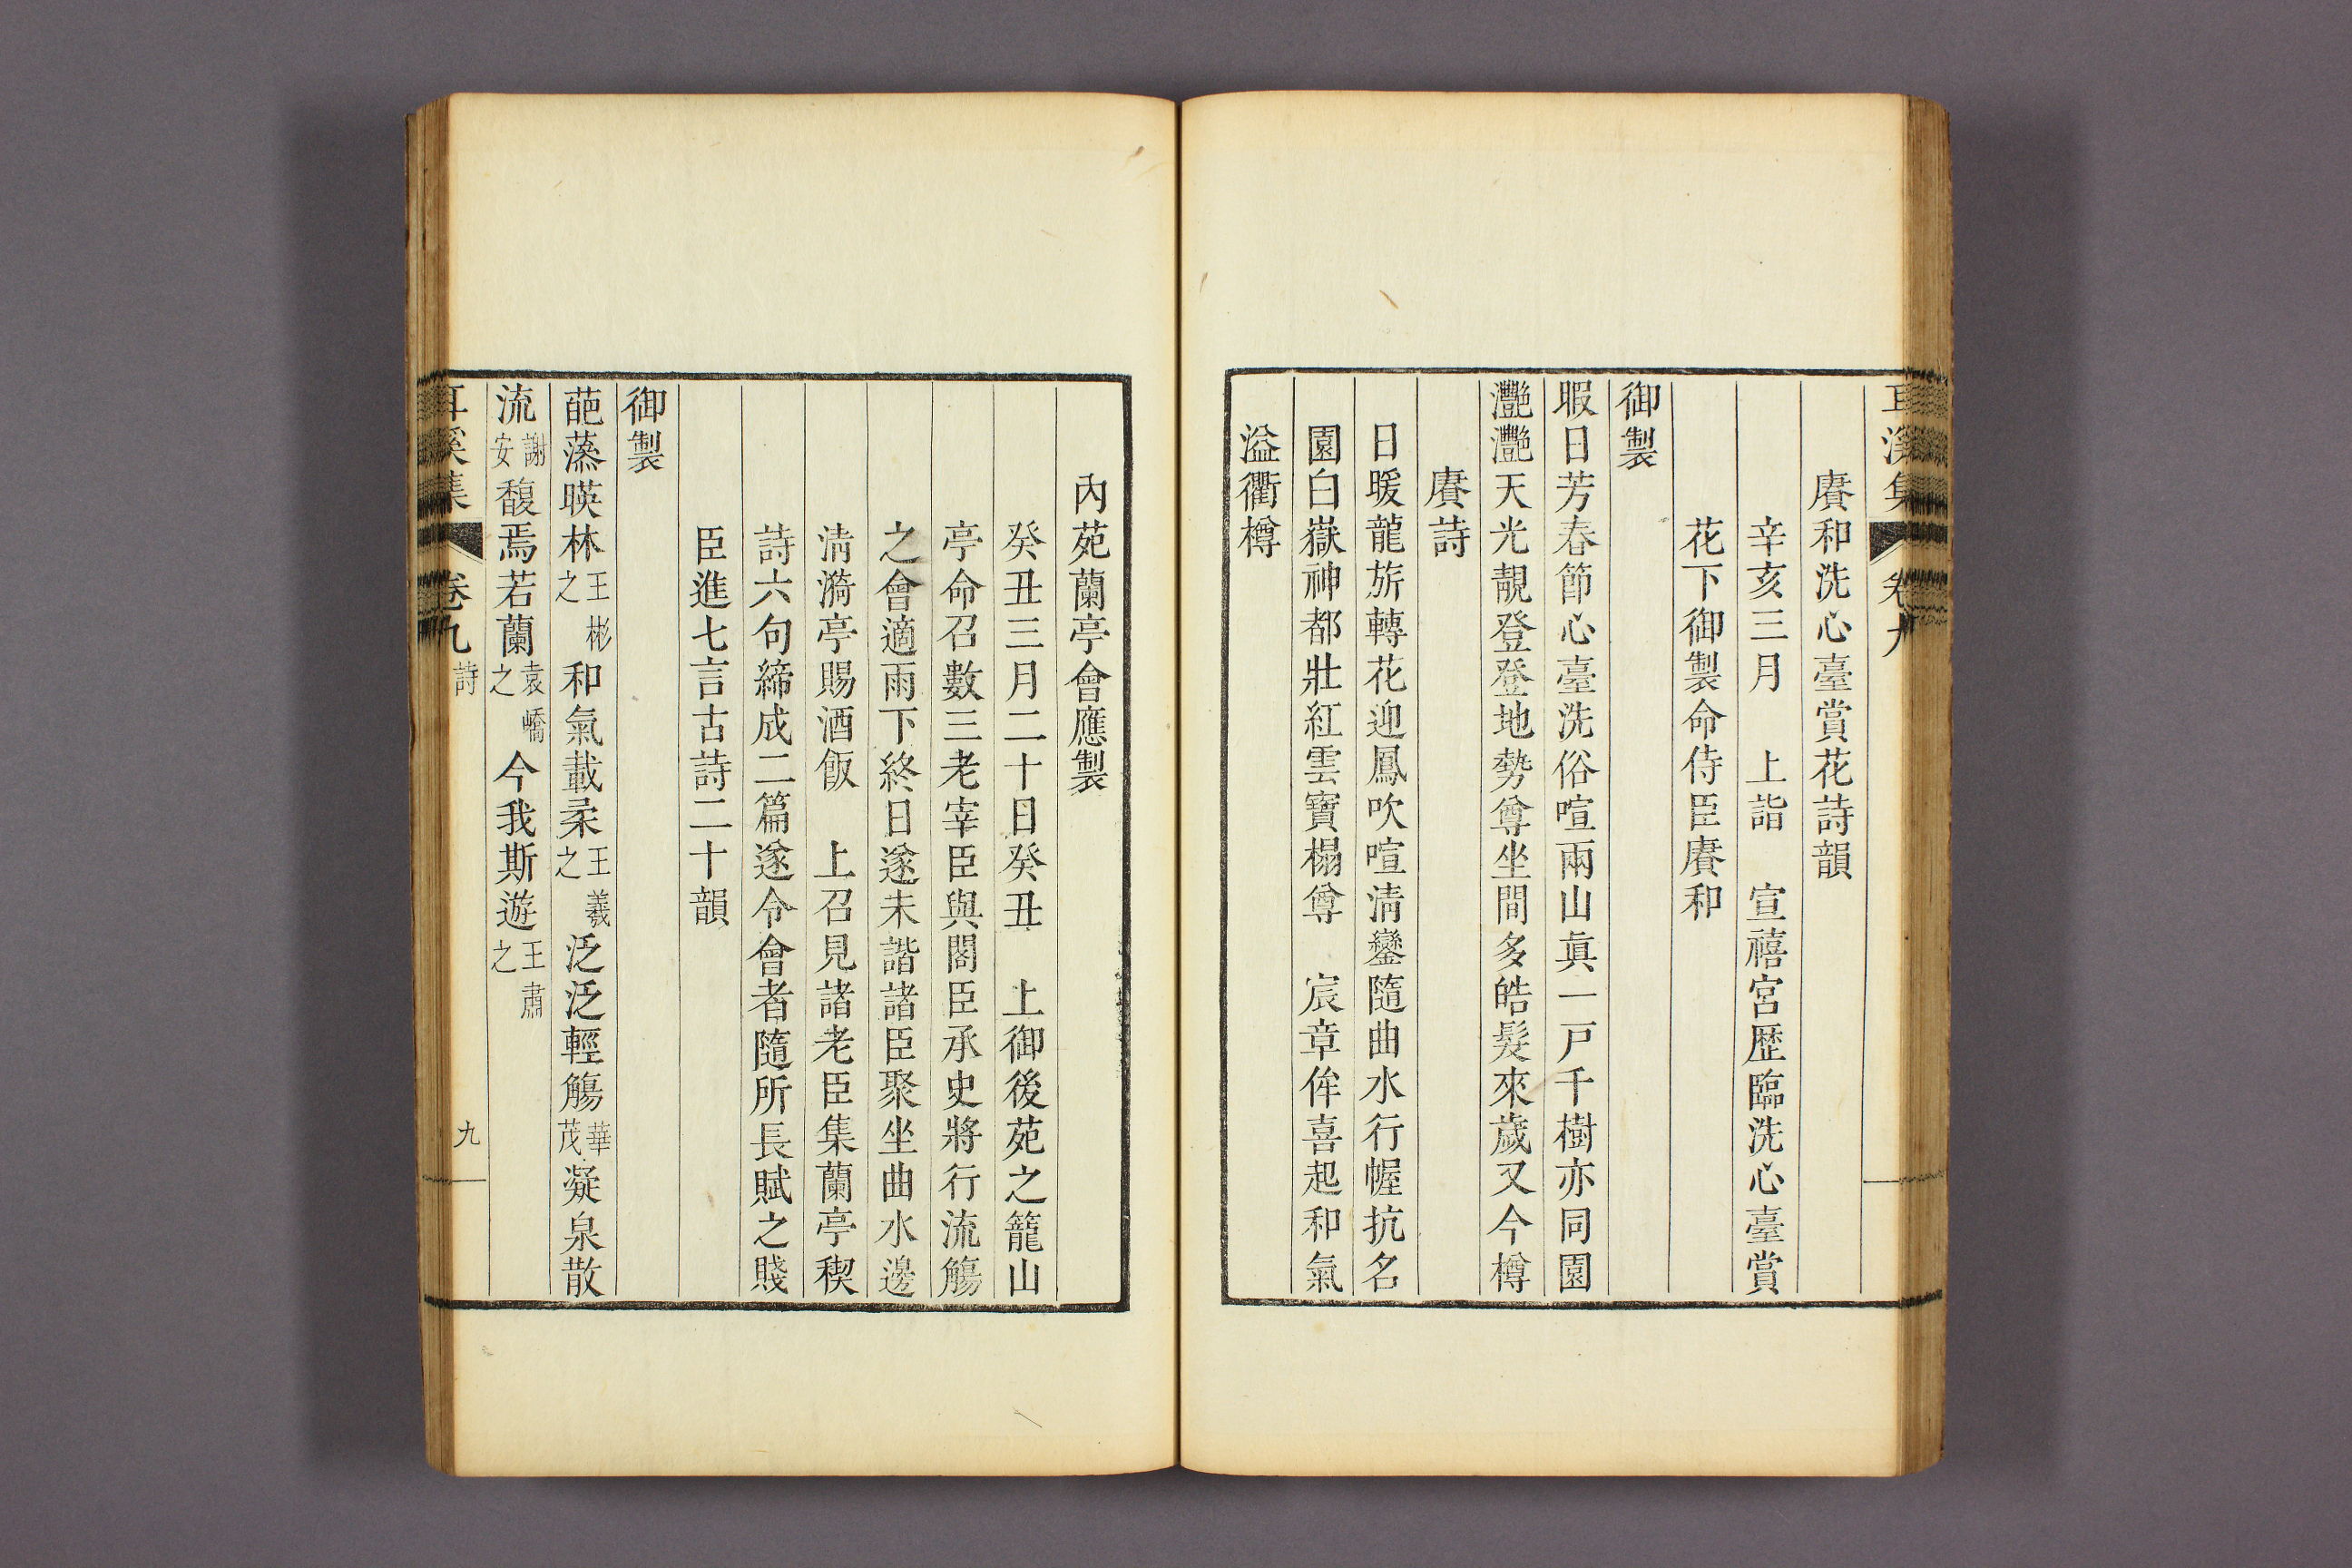 耳溪集 卷九
賡和洗心臺賞花詩韻
辛亥三月 上詣 宣禧宮歷臨洗心臺賞
花下御製命侍臣賡和
御製
暇日芳春節心臺洗俗喧兩山眞一戶千樹亦同園
灧灧天光靚登登地勢尊坐間多皓髮來歲又今樽
賡詩
日暖龍旂轉花迎鳳吹喧淸鑾隨曲水行幄抗名
園白嶽神都壯紅雲寶榻尊 宸章侔喜起和氣
溢衢樽
內苑蘭亭會應製
癸丑三月二十日癸丑 上御後苑之籠山
亭命召數三老宰臣與閣臣承史將行流觴
之會適雨下終日遂未諧諸臣聚坐曲水邊
淸漪亭賜酒飯 上召見諸老臣集蘭亭稧
詩六句締成二篇遂令會者隨所長賦之賤
臣進七言古詩二十韻
御製
葩蒸暎林王彬之和氣載柔王羲之泛泛輕觴華茂凝泉散
流謝安馥焉若蘭袁嶠之今我斯遊王肅之
耳溪集 卷九 詩 九